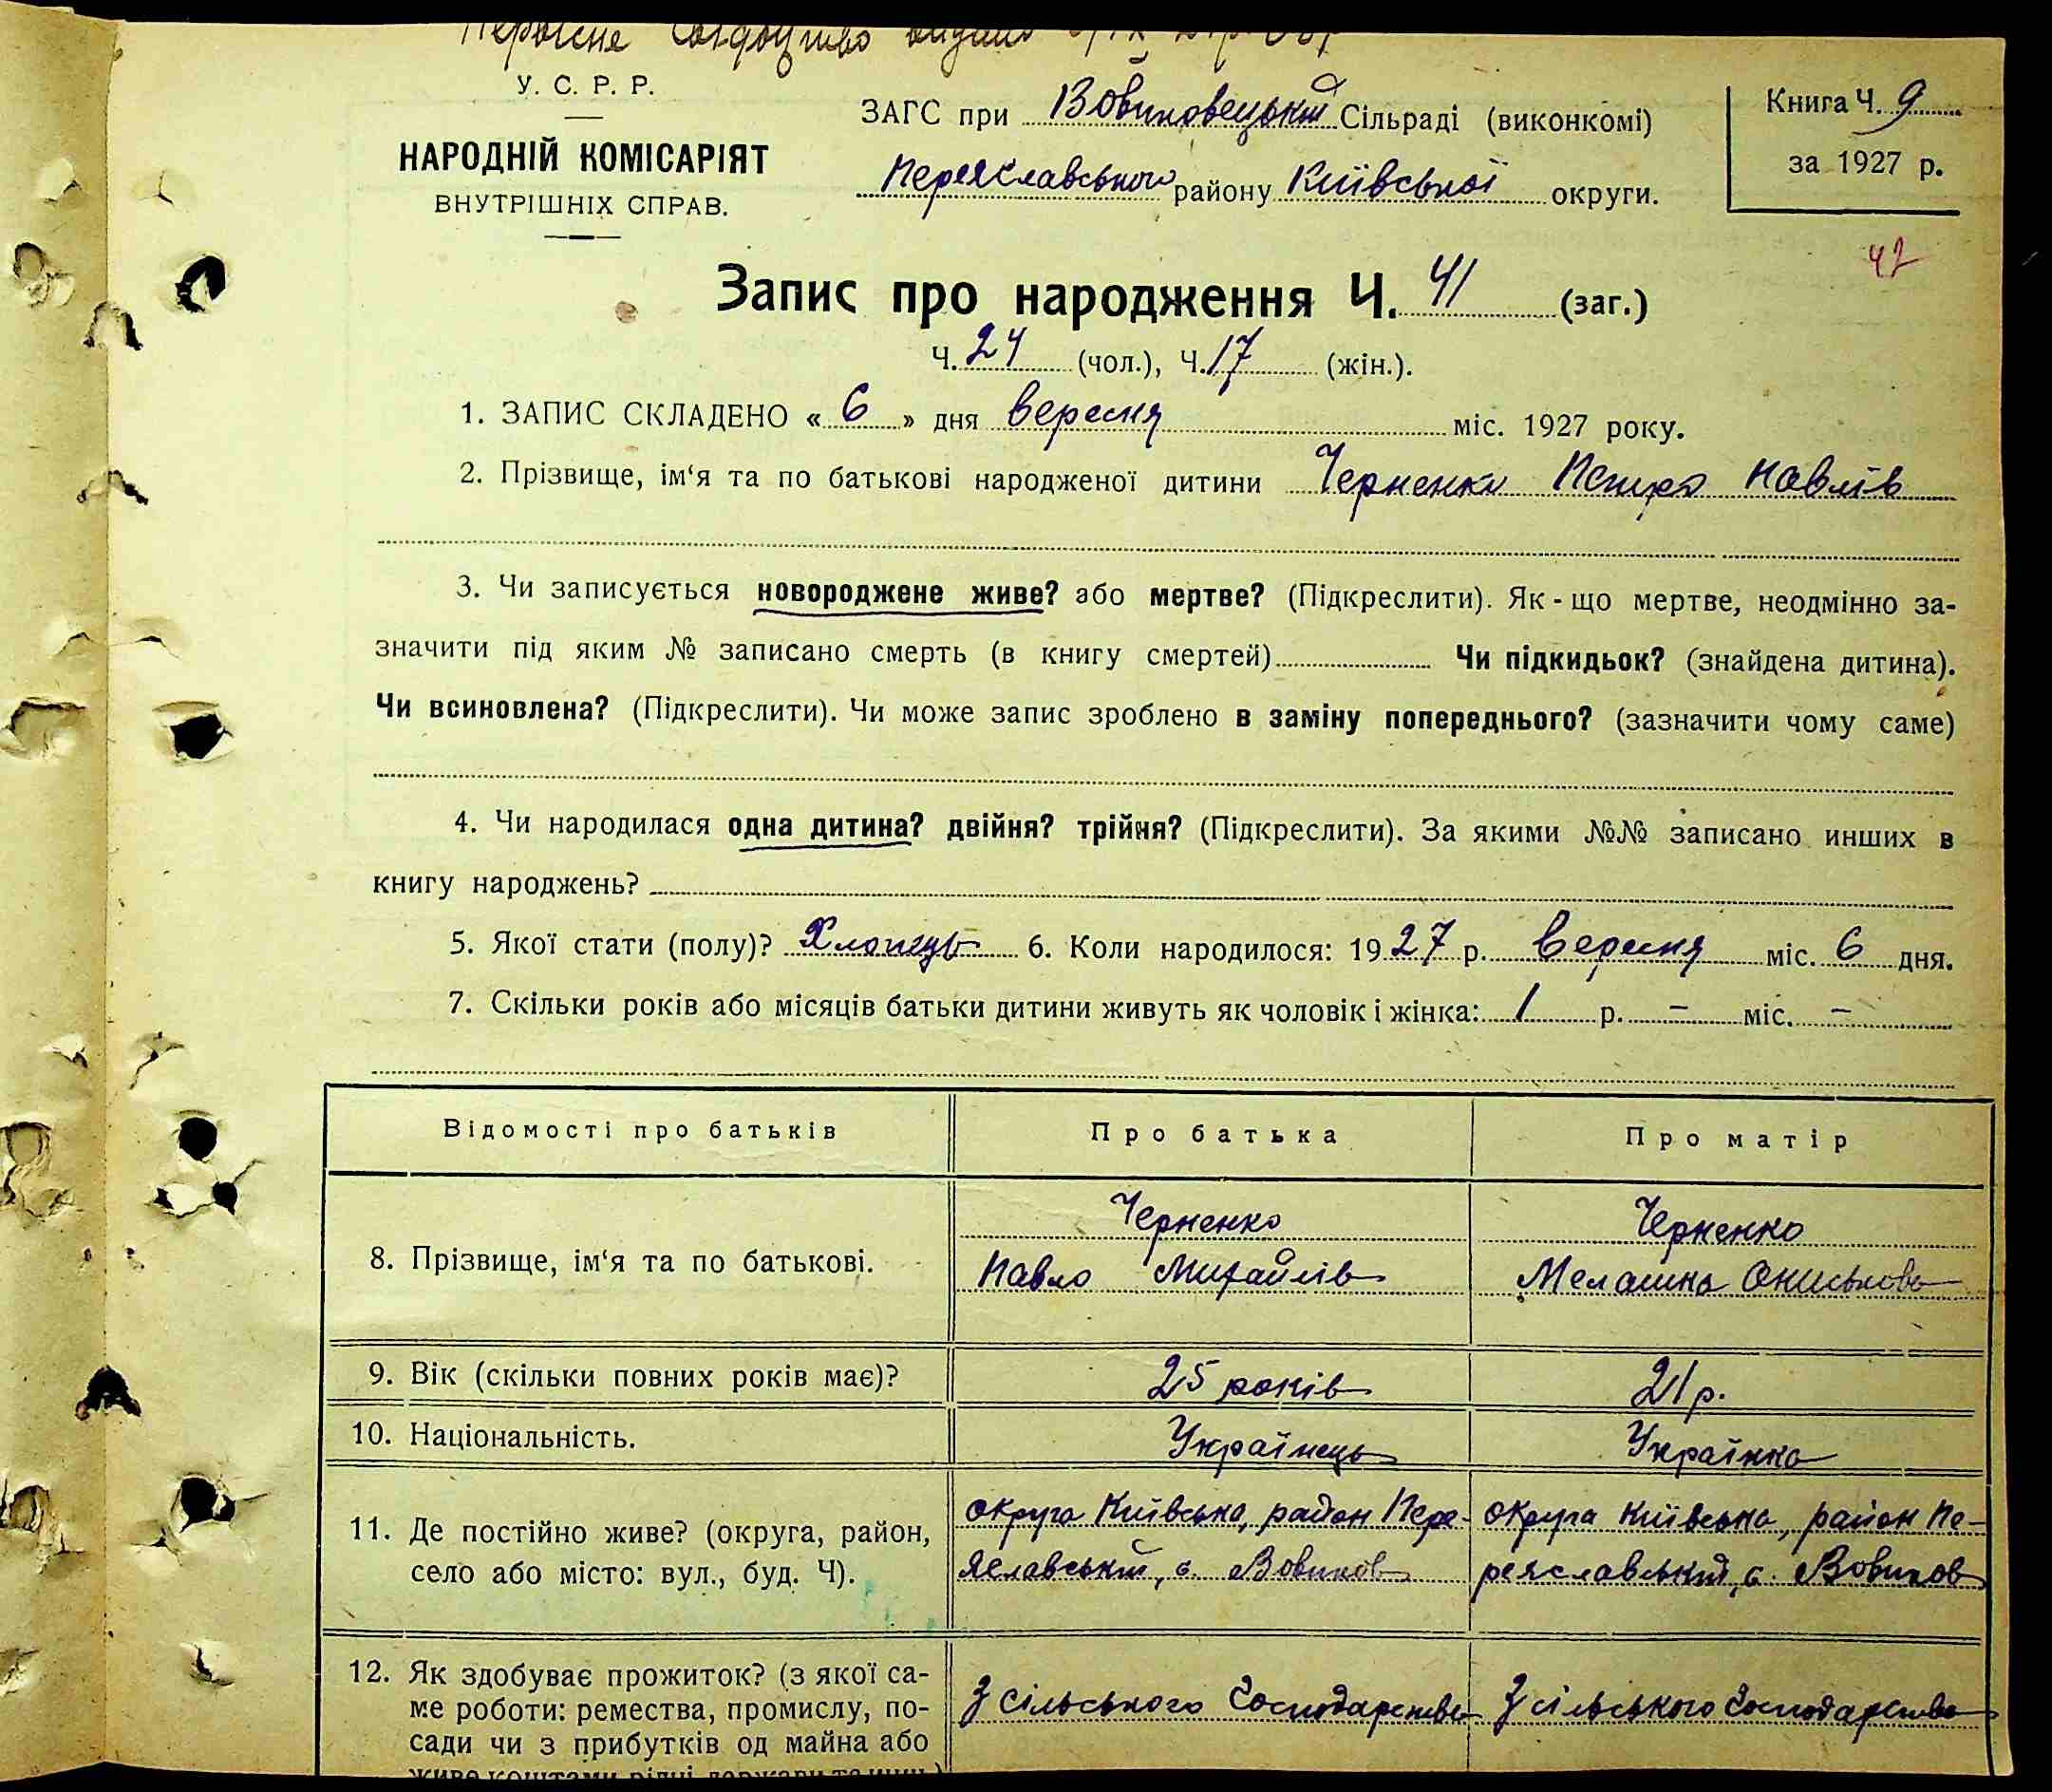 Первісне свідоцтво видано
У. С. Р. Р.
НАРОДНІЙ КОМІСАРІЯТ
ВНУТРІШНІХ СПРАВ.
ЗАГС при Вовчковецькій Сільраді (виконкомі)
Переяславського району Київської округи.
Книга Ч. 9
за 1927 р.
42
Запис про народження Ч. 41 (заг.)
Ч. 24 (чол.), Ч. 17 (жін.).
1. ЗАПИС СКЛАДЕНО « 6 » дня вересня міс. 1927 року.
2. Прізвище, ім‘я та по батькові народженої дитини Черненко Петро Павлів
3. Чи записується новороджене живе? або мертве? (Підкреслити). Як - що мертве, неодмінно за-
значити під яким № записано смерть (в книгу смертей) Чи підкидьок? (знайдена дитина).
Чи всиновлена? (Підкреслити). Чи може запис зроблено в заміну попереднього? (зазначити чому саме)
4. Чи народилася одна дитина? двійня? трійня? (Підкреслити). За якими №№ записано инших в
книгу народжень?
5. Якої стати (полу)? Хлопець 6. Коли народилося: 1927 р. вересня міс. 6 дня.
7. Скільки років або місяців батьки дитини живуть як чоловік і жінка: 1 р. – міс. –
Відомості про батьків Про батька Про матір
8. Прізвище, ім‘я та по батькові.
Черненко
Павло Михайлів
Черненко
Мелашка Ониськова
9. Вік (скільки повних років має)? 25 років 21 р.
10. Національність. Українець Українка
11. Де постійно живе? (округа, район,
село або місто: вул., буд. Ч).
округа Київська, район Пере-
яславський, с. Вовчков
округа Київська, район Пе-
реяславський, с. Вовчков
12. Як здобуває прожиток? (з якої са-
ме роботи: ремества, промислу, по-
сади чи з прибутків од майна або
живе коштами рідні, держави та инш.)
З сільського господарства
З сільського господарства